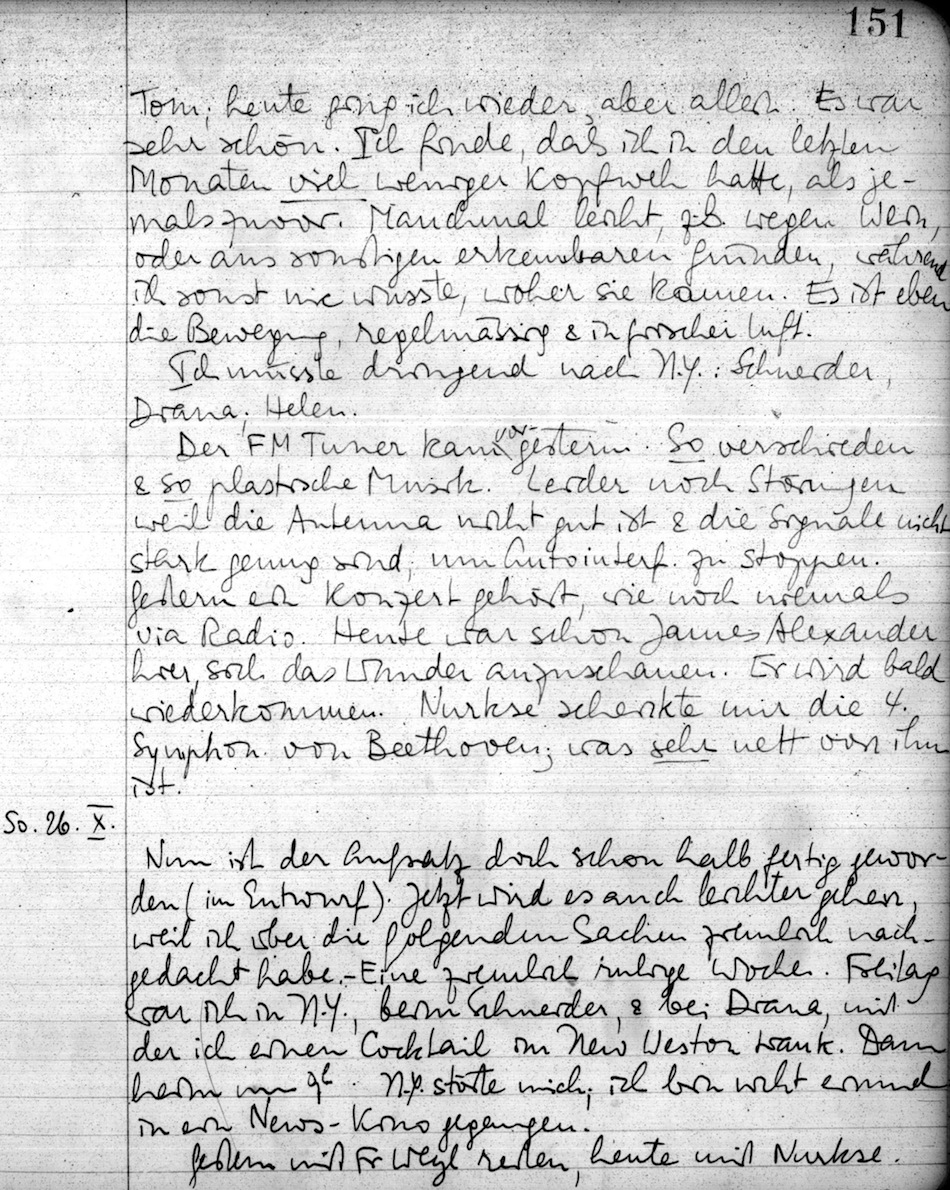 151
Tom; heute ging ich wieder, aber allein. Es war
sehr schön. Ich finde, dass ich in den letzten
Monaten viel weniger Kopfweh hatte, als je-
mals zuvor. Manchmal leicht, z.b. wegen Wein,
oder aus sonstigen erkennbaren Gründen, während
ich sonst nie wusste, woher sie kamen. Es ist eben
die Bewegung, regelmässig & in frischer Luft.
Ich müsste dringend nach N.Y.: Schneider,
Diana, Helen.
Der FM Tuner kam vor-gestern. So verschieden
& so plastische Musik. Leider noch Störungen
weil die Antenna nicht gut ist & die Signale nicht
stark genug sind, um Autointerf. zu stoppen.
Gestern ein Konzert gehört, wie noch niemals
via Radio. Heute war schon James Alexander
hier, sich das Wunder anzuschauen. Er wird bald
wiederkommen. Nurkse schenkte mir die 4.
Symphon. von Beethoven; was sehr nett von ihm
ist.
So. 26. X.
Nun ist der Aufsatz doch schon halb fertig gewor-
den (im Entwurf). Jetzt wird es auch leichter gehen,
weil ich über die folgenden Sachen ziemlich nach-
gedacht habe.- Eine ziemlich ruhige Woche. Freitag
war ich in N.Y., beim Schneider, & bei Diana, mit
der ich einen Cocktail im New Weston trank. Dann
heim um 9h. N.Y. störte mich; ich bin nicht einmal
in ein News-Kino gegangen.
Gestern mit Fr Weyl reiten, heute mit Nurkse.